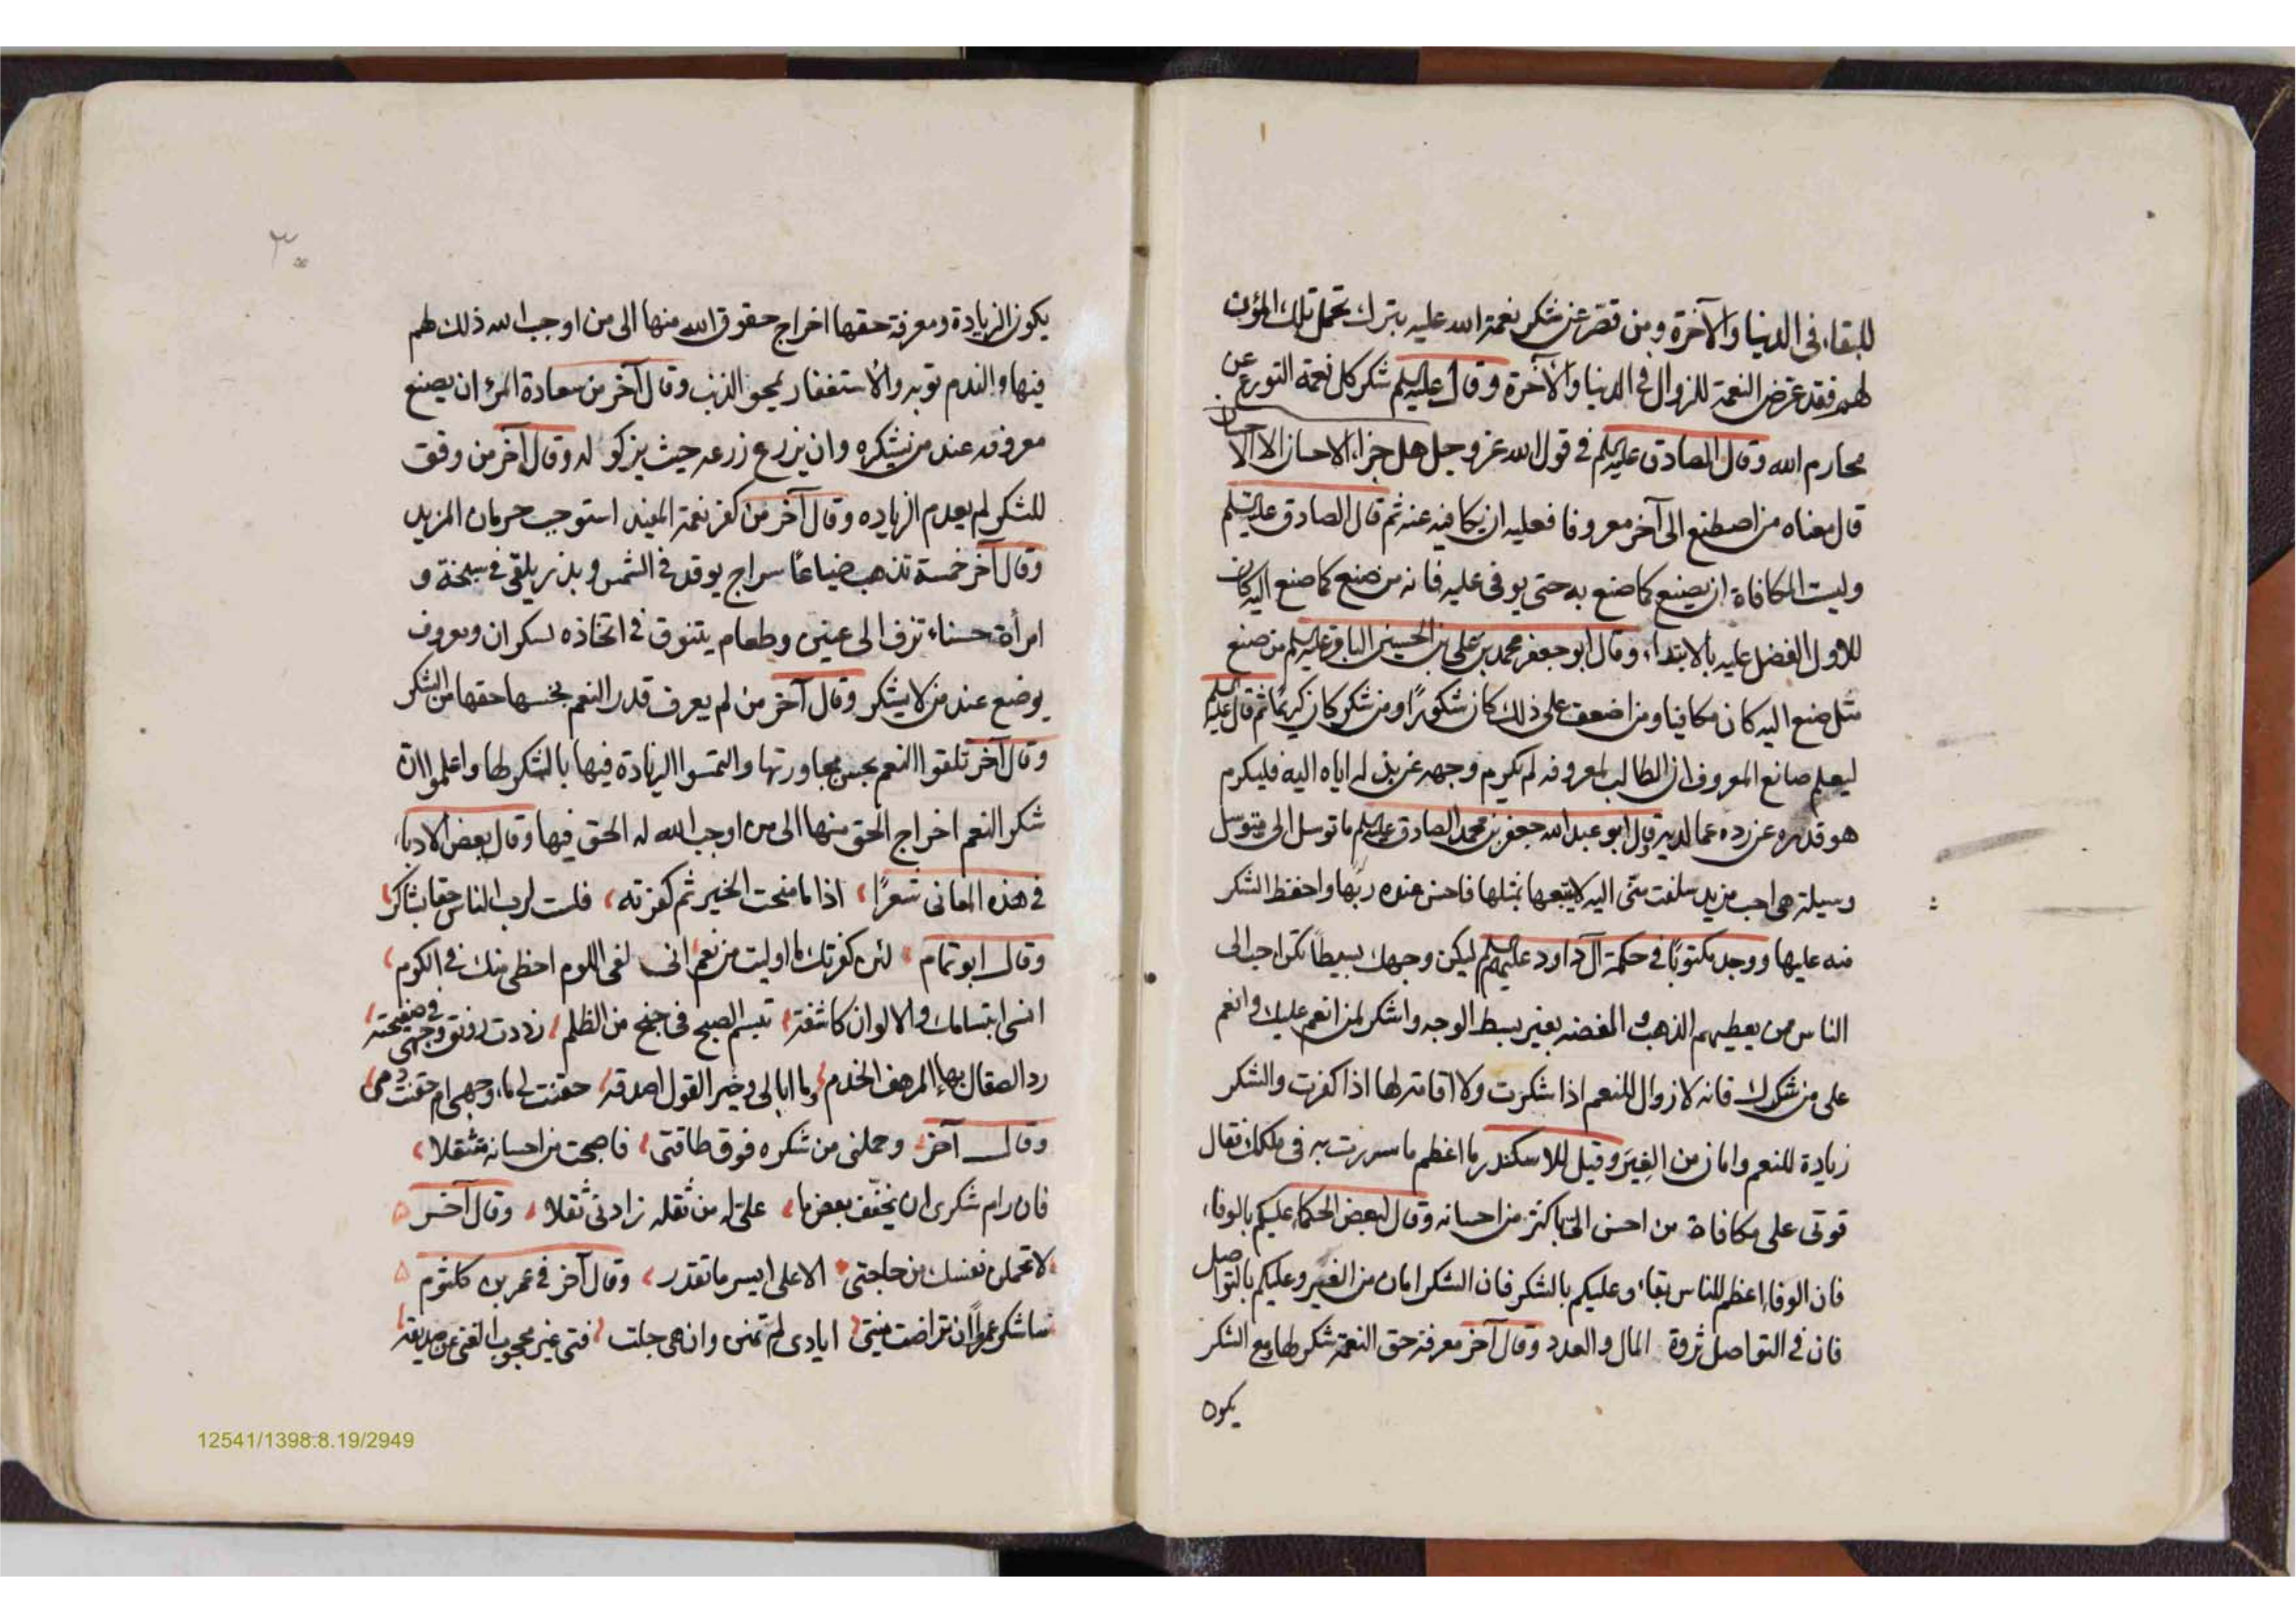 للبقاء فى الدنيا والآخرة ومن قصر عن شكر نعمة الله عليه بترك تحمل تلك المؤن
لهم فقد عرض النعمة للزوال فى الدنيا والآخرة وقال عليه السلم شكر كل نعمة التورع عن
محارم الله وقال الصادق عليه السلم فى قول الله عز وجل هل جزاء الاحسان الا الاحسان
قال معناه من اصطنع الى آخر معروفا فعليه ان يكافيه عنه ثم قال الصادق عليه السلم
وليت المكافاة ان يصنع كما صنع به حتى يوفى عليه فانه من صنع كما صنع اليه كان
للاول الفضل عليه بالابتداء وقال ابو جعفر محمد بن على بن الحسين الباقر عليه السلم من صنع
مثل صنع اليه كان مكافيا ومن اضعف على ذلك كان شكورًا ومن شكر كان كريمًا ثم قال عليه السلم
ليعلم صانع المعروف ان الطالب لمعروفه لم يكرم وجهه عن بذله اياه اليه فليكرم
هو قدره عن رده عما لديه وقال ابو عبد الله جعفر بن محمد الصادق عليه السلم ما توسل الى متوسل
وسيلة هى احب من يد سلفت منى اليه لا يتبعها بمثلها فاحسن عنده ربها واحفظ الشكر
منه عليها ووجد مكتوبًا فى حكمة آل داود عليهم السلم ليكن وجهك بسيطًا تكن احب الى
الناس ممن يعطيهم الذهب والفضه بغير بسط الوجه واشكر لمن انعم عليك وانعم
على من شكرك فانه لا زوال للنعم اذا شكرت ولا اقامة لها اذا كفرت والشكر
زيادة للنعم وامان من الغِيَر وقيل للاسكندر ما اعظم ما سررت به فى ملكك فقال
قوتى على مكافاة من احسن الىّ باكثر من احسانه وقال لبعض الحكماء عليكم بالوفاء
فان الوفاء اعظم للناس بقاء وعليكم بالشكر فان الشكر امان من الغير وعليكم بالتواصل
فان فى التواصل ثروة المال والعدد وقال آخر معرفة حق النعمة شكر لها ومع الشكر
يكون
٣٠
يكون الزيادة ومعرفة حقها اخراج حقوق الله منها الى من اوجب الله ذلك لهم
فيها والندم توبه والاستغفار يمحو الذنب وقال آخر من سعادة المرء ان يصنع
معروفه عند من يشكره وان يزرع زرعه حيث يزكو له وقال آخر من وفق
للشكر لم يعدم الزياده وقال آخر من كفر نعمة المفيد استوجب حرمان المزيد
وقال آخر خمسة تذهب ضياعًا سراج يوقد فى الشمس وبذر يلقى فى سبخة و
امرأة حسناء تزف الى عنين وطعام يتنوق فى اتخاذه لسكران ومعروف
يوضع عند من لا يشكر وقال آخر من لم يعرف قدر النعم بخسها حقها من الشكر
وقال آخر تلقوا النعم بحسن مجاورتها والتمسوا الزيادة فيها بالشكر لها واعلموا ان
شكر النعم اخراج الحق منها الى من اوجب الله له الحق فيها وقال بعض الادباء
فى هذه المعانى شعرًا اذا ما منحت الخير ثم كفرته فلست لرب الناس حقا بشاكر
وقال ابو تمام لئن كفرتك ما اوليت من نعم انى لفى اللوم احظى منك فى الكرم
انسى ابتسامك والالوان كاشفة تبسم الصبح فى جنح من الظلم رددت رونق وجهى فى صفيحته
رد الصقال بهاء المرهف الخدم وما ابالى وخير القول اصدقه حقنت لى ماء وجهى ام حقنت دمى
وقال آخر وحملنى من شكره فوق طاقتى فاصبحت من احسانه مثقلا
فان رام شكرى ان يخفف بعض ما علىّ له من ثقله زادنى ثقلا وقال آخر
لا تحملن نفسك من حاجتى الا على ايسر ما تقدر وقال آخر فى عمر بن كلثوم
ساشكر عمرًا ان تراخت منيتى ايادى لم تمنن وان هى جلت فتى غير محجوب الغنى عن صديقه
12541/1398.8.19/2949